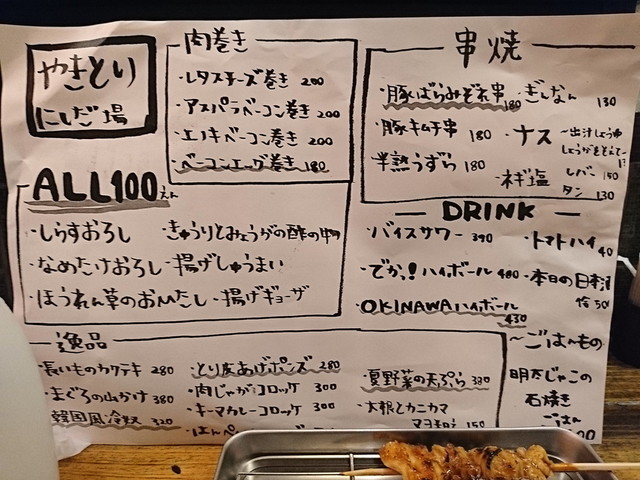 やきとり
にしだ場
肉巻き
・レタスチーズ巻き 200
・アスパラベーコン巻き 200
・エノキベーコン巻き 200
・ベーコンエッグ巻き 180
串焼
・豚ばらみぞれ串 180
・ぎんなん 130
豚キムチ串 180
・ナス ～出汁しょうゆ
しょうがをそえて～
半熟うずら 180
・ネギ塩 レバー 150
タン 130
ALL100えん
・しらすおろし ・きゅうりとみょうがの酢の物
・なめたけおろし ・揚げしゅうまい
・ほうれん草のおひたし ・揚げギョーザ
DRINK
・バイスサワー 390
・トマトハイ 40
・でかっ!ハイボール 480
・本日の日本酒
OKINAWAハイボール 430
逸品
・長いものカクテキ 280
・とり皮あげポンズ 280
・まぐろの山かけ 380
・肉じゃがコロッケ 300
・夏野菜の天ぷら 380
韓国風冷奴 320
・キーマカレーコロッケ 300
・大根とカニカマ
マヨネロ 150
・はんぺ
～ごはんもの
明太じゃこの
石焼き
ごはん